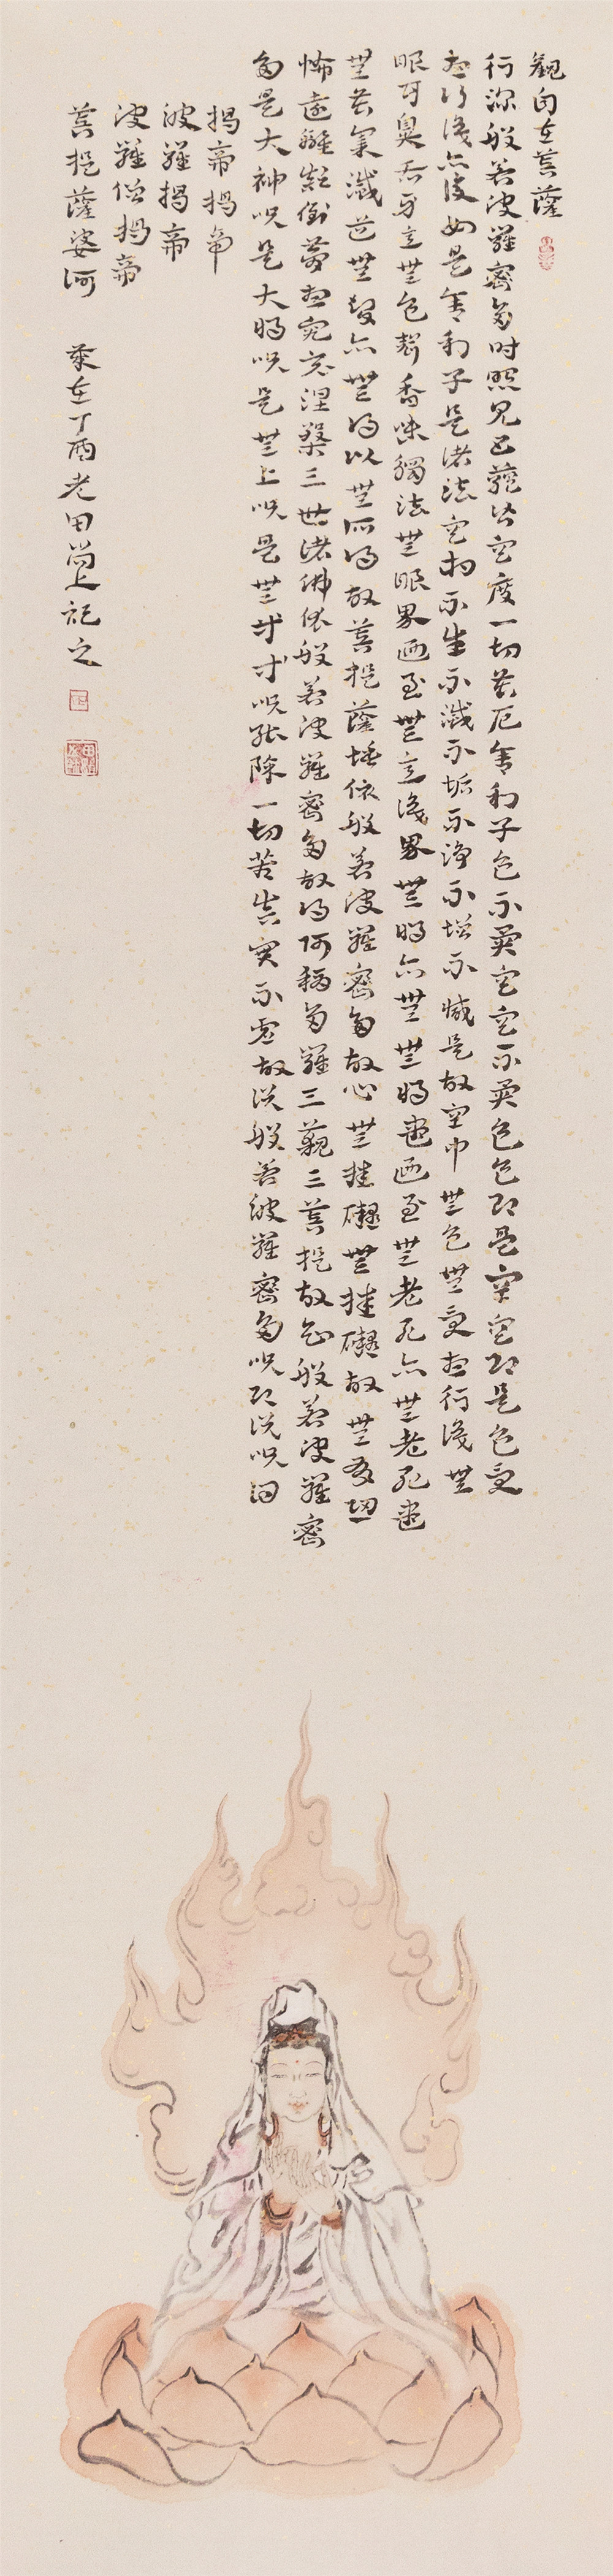 觀自在菩薩
行深般若波羅蜜多時照見五蘊皆空度一切苦厄舍利子色不異空空不異色色即是空空即是色受
想行識亦復如是舍利子是諸法空相不生不滅不垢不淨不增不減是故空中無色無受想行識無
眼耳鼻舌身意無色聲香味觸法無眼界迺至無意識界無明亦無無明盡迺至無老死亦無老死盡
無苦集滅道無智亦無得以無所得故菩提薩埵依般若波羅蜜多故心無挂礙無挂礙故無有恐
怖遠離顛倒夢想究竟涅槃三世諸佛依般若波羅蜜多故得阿耨多羅三藐三菩提故知般若波羅蜜
多是大神呪是大明呪是無上呪是無等等呪能除一切苦真實不虛故說般若波羅蜜多呪即說呪曰
揭帝揭帝
波羅揭帝
波羅僧揭帝
菩提薩婆訶 歲在丁酉老田記之